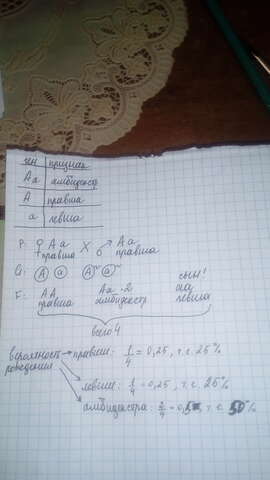 ген | признак
Аа | амбидекстр
А | правша
а | левша
P: ♀ Аа X ♂ Аа
правша правша
G: А а А а
сын!
F: АА Аа·2 аа
правша амбидекстр левша
всего 4
вероятность рождения → правши: 1/4 = 0,25, т.е. 25%
левши: 1/4 = 0,25, т.е. 25%
амбидекстра: 2/4 = 0,5, т.е. 50%